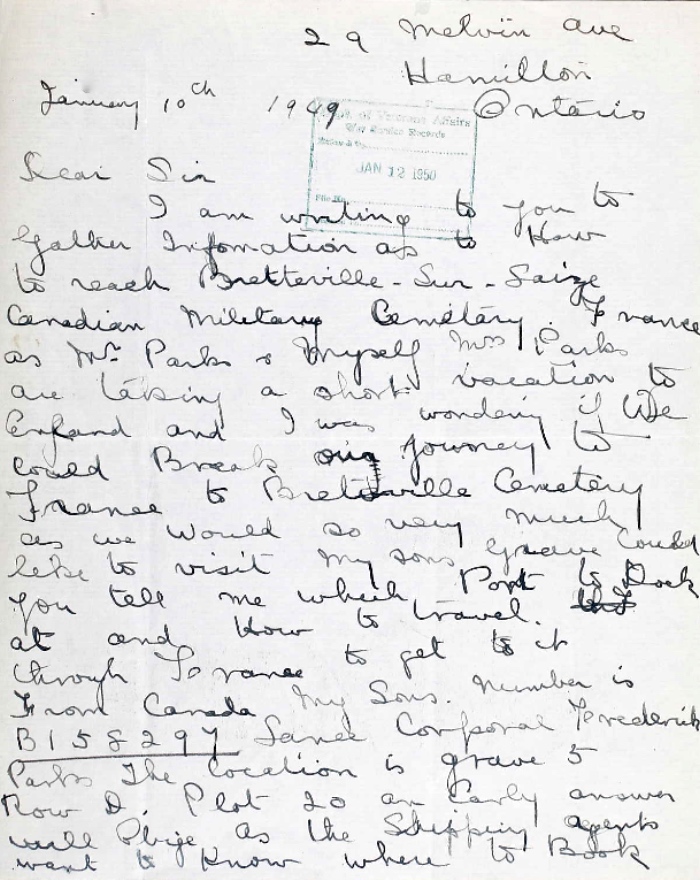 29 Melvin Ave
Hamilton
January 10th 1949 Ontario
Dept. of Veterans Affairs
War Service Records
JAN 12 1950
File No.
Dear Sir
I am writing to you to
Gather Infomation as to How
to reach Bretteville-Sur-Laize
Canadian Military Cemetary. France
as Mr Parks & Myself Mrs Parks
are taking a short vacation to
England and I was wondering if We
could Break our journey to
France to Bretteville Cemetery
as we would so very much
like to visit my sons grave Could
you tell me which Port to Dock
at and How to travel.
through France to get to it
From Canada My Sons. Number is
B158297 Lance Corporal Frederick
Parks The location is grave 5
Row D. Plot 20 an Early answer
will Oblige as the Shipping agents
want to Know where to Book